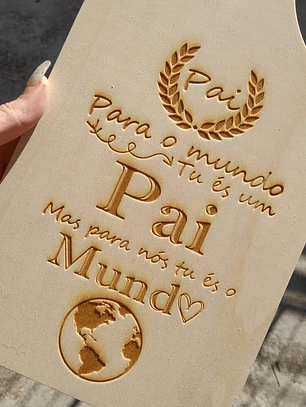 Pai
Para o mundo
Tu és um
Pai
Mas para nós tu és o
Mundo